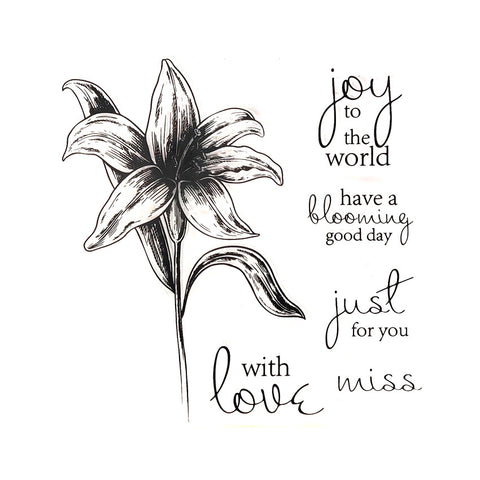 joy
to
the
world
have a
blooming
good day
just
for you
with
love
miss